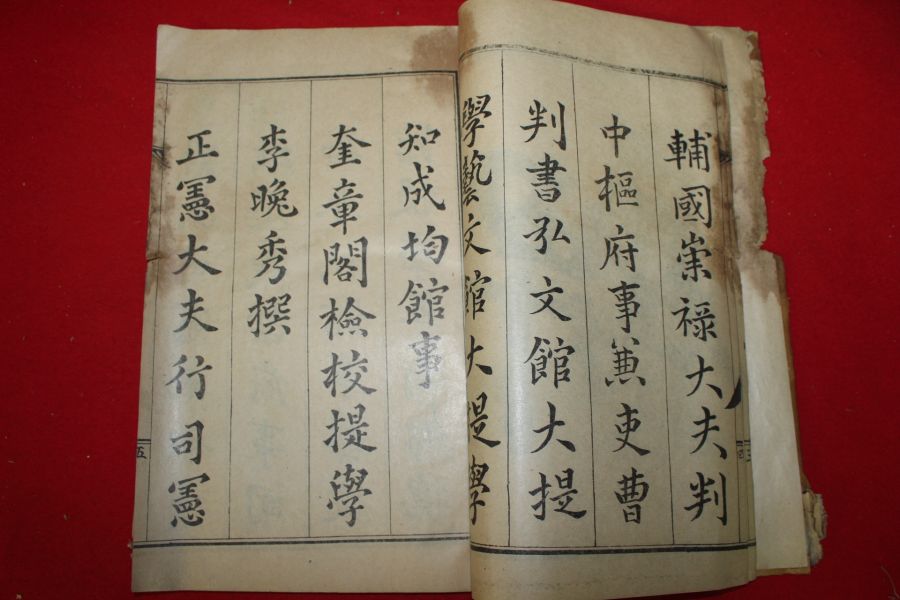 輔國崇禄大夫判
中樞府事兼吏曹
判書弘文館大提
學藝文館大提學
知成均館事
奎章閣檢校提學
李晚秀撰
正憲大夫行司憲
五